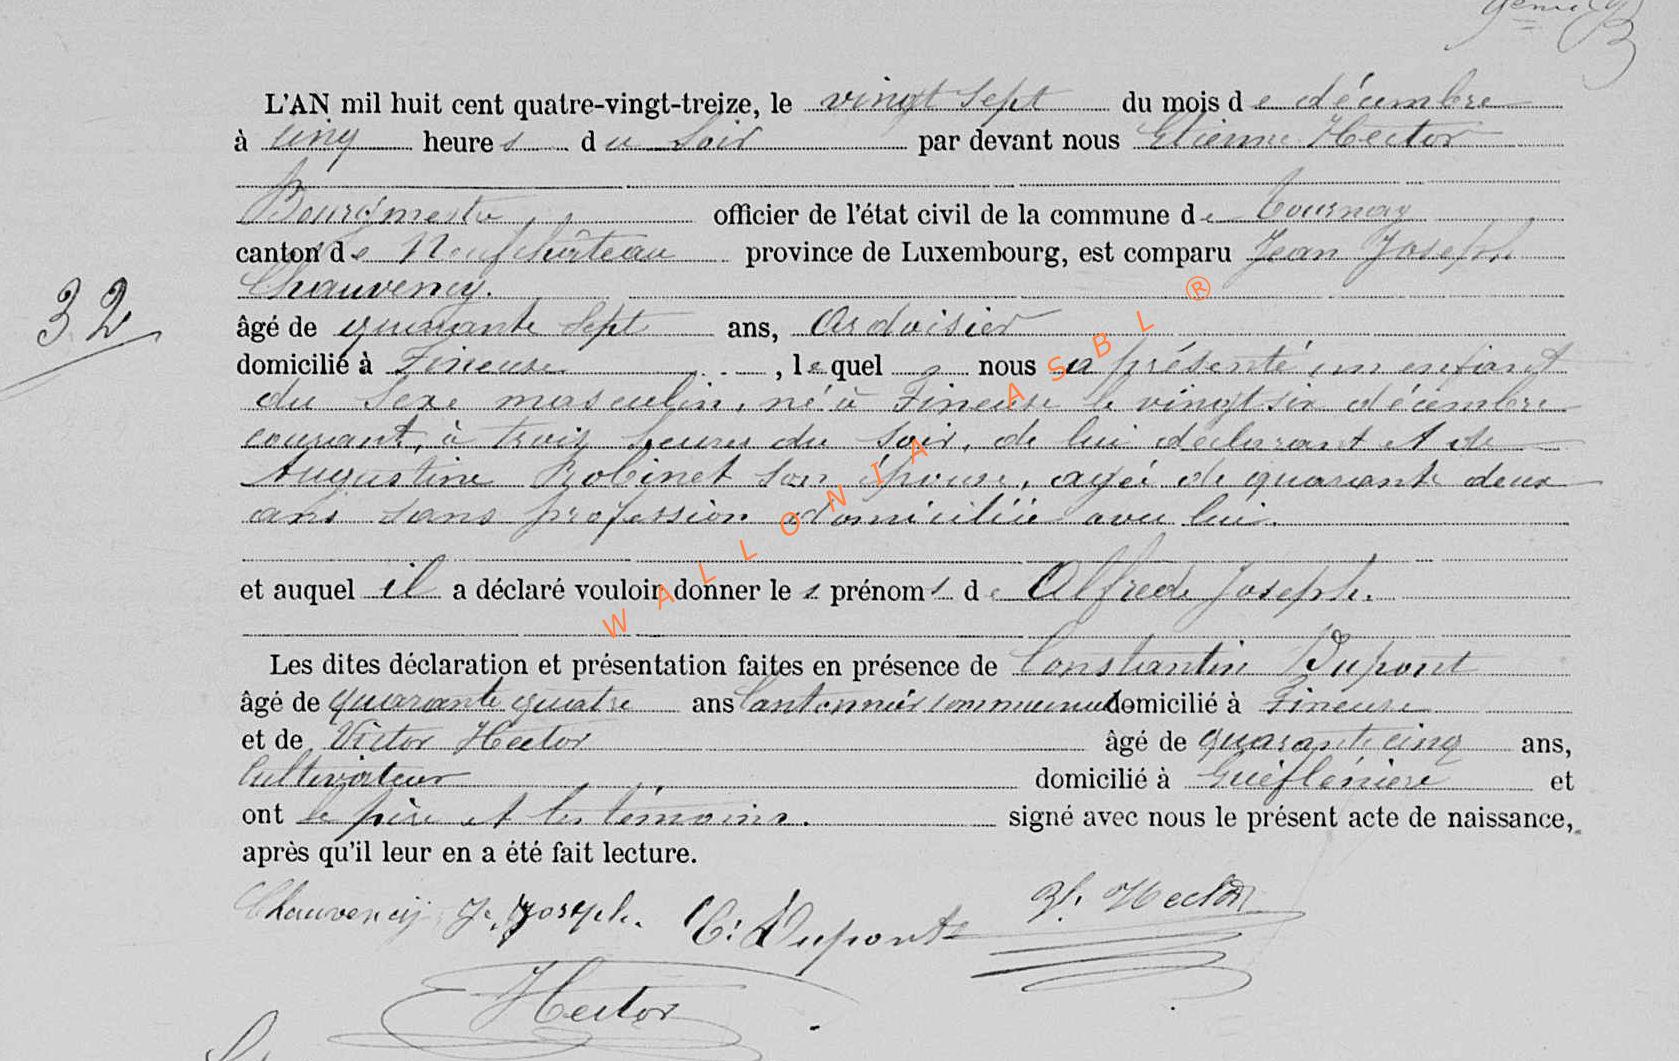 L'AN mil huit cent quatre-vingt-treize, le vingt sept du mois de décembre
à cinq heures du soir par devant nous Etienne Hector
Bourgmestre officier de l'état civil de la commune de Tournay
canton de Neufchâteau province de Luxembourg, est comparu Jean Joseph
Chauvency.
32
âgé de quarante sept ans, Ardoisier
domicilié à Fineuse, lequel nous a présenté un enfant
du sexe masculin, né à Fineuse le vingt six décembre
courant, à trois heures du soir, de lui déclarant et de
Augustine Robinet son épouse, agée de quarante deux
ans sans profession domiciliée avec lui.
et auquel il a déclaré vouloir donner les prénoms de Alfred Joseph.
Les dites déclaration et présentation faites en présence de Constantin Dupont
âgé de quarante quatre ans Cantonnier communal domicilié à Fineuse
et de Victor Hector âgé de quarante cinq ans,
Cultivateur domicilié à et
ont le père et les témoins. signé avec nous le présent acte de naissance,
après qu'il leur en a été fait lecture.
Chauvency J. Joseph. C: Dupont Hector
Hector
WALLONIA ASBL ®